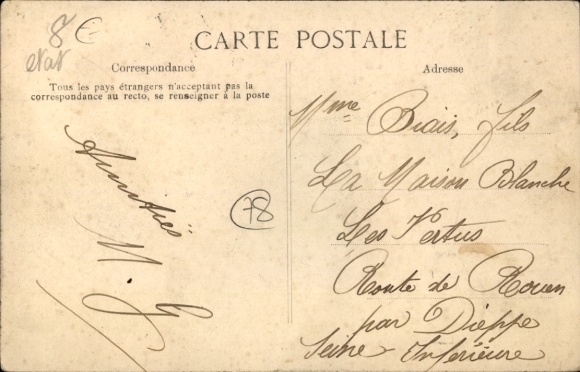 8€
état
CARTE POSTALE
Correspondance
Tous les pays étrangers n'acceptant pas la
correspondance au recto, se renseigner à la poste
Amitiés
M. G
78
Adresse
Mme Biais, fils
La Maison Blanche
Les Vertus
Route de Rouen
par Dieppe
Seine-Inférieure